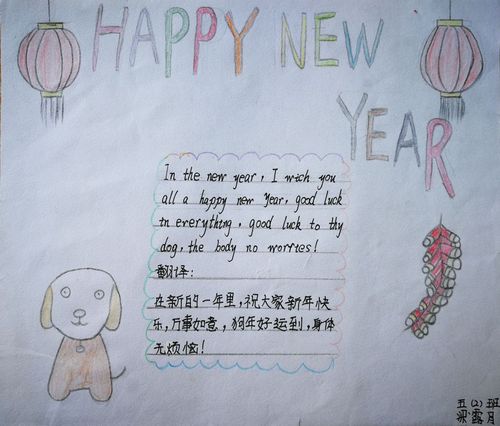 HAPPY NEW
YEAR
In the new year, I wish you
all a happy new Year, good luck
in everything, good luck to thy
dog, the body no worries!
翻译:
在新的一年里,祝大家新年快
乐,万事如意,狗年好运到,身体
无烦恼!
五(2)班
梁露月